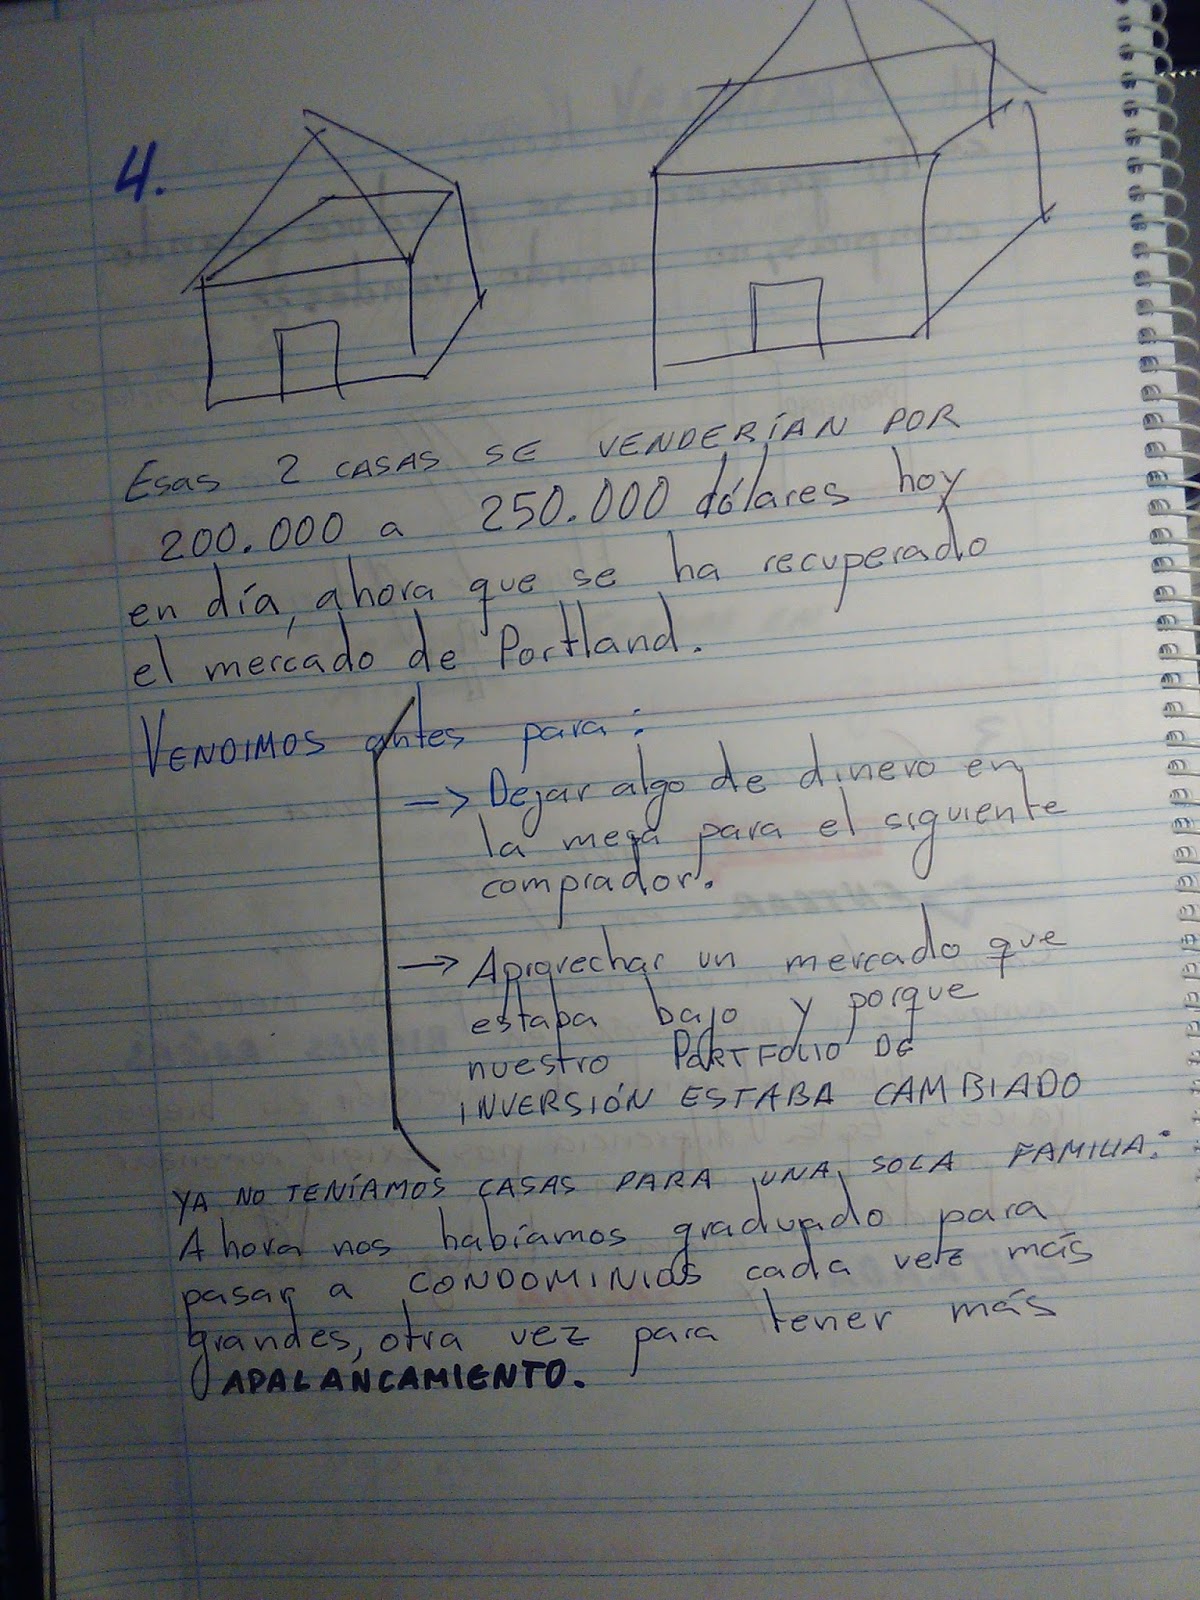 4.
Esas 2 CASAS SE VENDERÍAN POR
200.000 a 250.000 dólares hoy
en día, ahora que se ha recuperado
el mercado de Portland.
VENDIMOS antes para:
-> Dejar algo de dinero en
la mesa para el siguiente
comprador.
-> Aprovechar un mercado que
estaba bajo y porque
nuestro PORTFOLIO DE
INVERSIÓN ESTABA CAMBIADO
YA NO TENÍAMOS CASAS PARA UNA SOLA FAMILIA:
Ahora nos habíamos graduado para
pasar a CONDOMINIOS cada vez más
grandes, otra vez para tener más
APALANCAMIENTO.